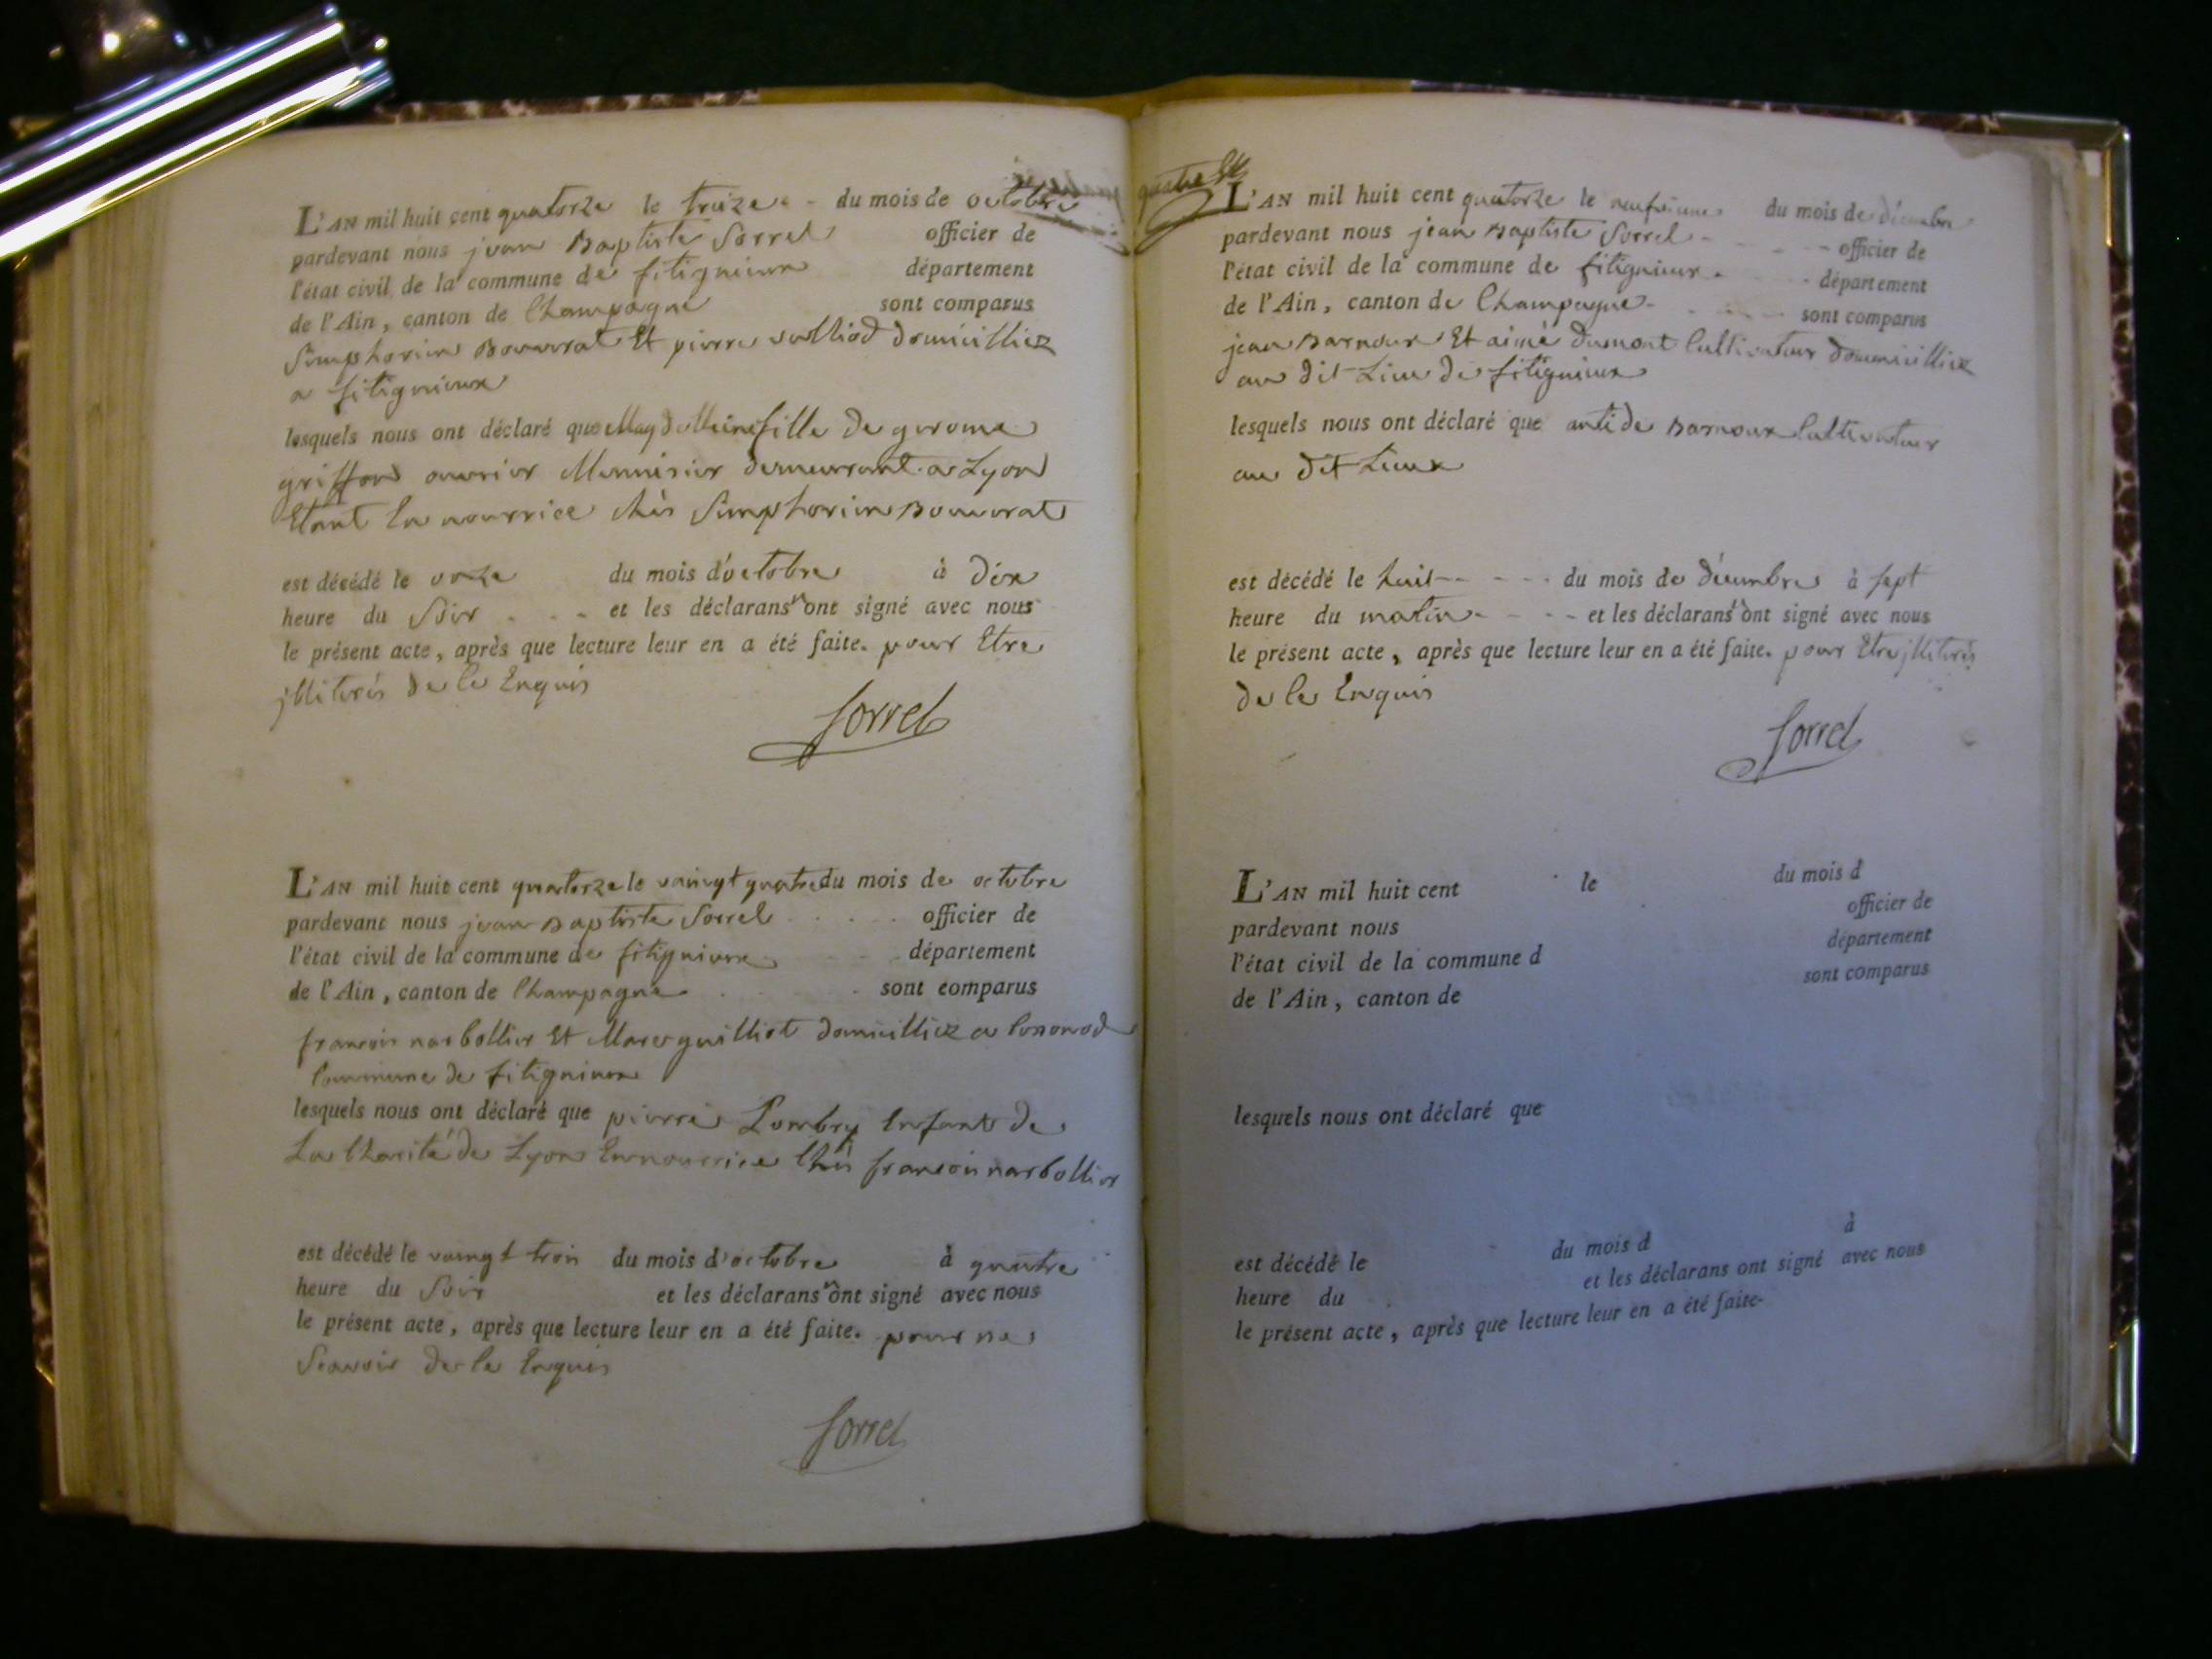 L'AN mil huit cent quatorze le treize du mois de octobre
pardevant nous jean Baptiste Sorrel officier de
l'état civil de la commune de fitignieux département
de l'Ain, canton de Champagne sont comparus
Simphorien Bouverat Et pierre vulliod domicilliez
a fitignieux
lesquels nous ont déclaré que Magdelleine fille de gerome
griffon ouvrier Mennisier demeurrant a Lyon
Etant En nourrice chès Simphorien Bouverat
est décédé le onze du mois d'octobre à dix
heure du Soir et les déclarans n'ont signé avec nous
le présent acte, après que lecture leur en a été faite. pour Etre
jlliterés de ce Enquis
Sorrel
L'AN mil huit cent quatorze le vaingt quatre du mois de octobre
pardevant nous jean Baptiste Sorrel officier de
l'état civil de la commune de fitignieux département
de l'Ain, canton de Champagne sont comparus
francois narbollier Et Marc guilliot domicilliez a
Commune de fitignieux
lesquels nous ont déclaré que pierre Lombry Enfant de
La Charité de Lyon En nourrice Chès francois narbollier
est décédé le vaingt trois du mois d'octobre à quatre
heure du Soir et les déclarans n'ont signé avec nous
le présent acte, après que lecture leur en a été faite. pour ne
Scavoir de ce Enquis
Sorrel
quatre
L'AN mil huit cent quatorze le neufvieme du mois de décembre
pardevant nous jean Baptiste Sorrel officier de
l'état civil de la commune de fitignieux département
de l'Ain, canton de Champagne sont comparus
jean Barnoux Et aimé Dumont Cultivateur domicilliez
au dit Lieu de fitignieux
lesquels nous ont déclaré que antide Barnoux Cultivateur
au dit Lieux
est décédé le huit du mois de décembre à sept
heure du matin et les déclarans n'ont signé avec nous
le présent acte, après que lecture leur en a été faite. pour Etre jlliterés
de ce Enquis
Sorrel
L'AN mil huit cent le du mois d
pardevant nous officier de
l'état civil de la commune d département
de l'Ain, canton de sont comparus
lesquels nous ont déclaré que
est décédé le du mois d à
heure du et les déclarans ont signé avec nous
le présent acte, après que lecture leur en a été faite.